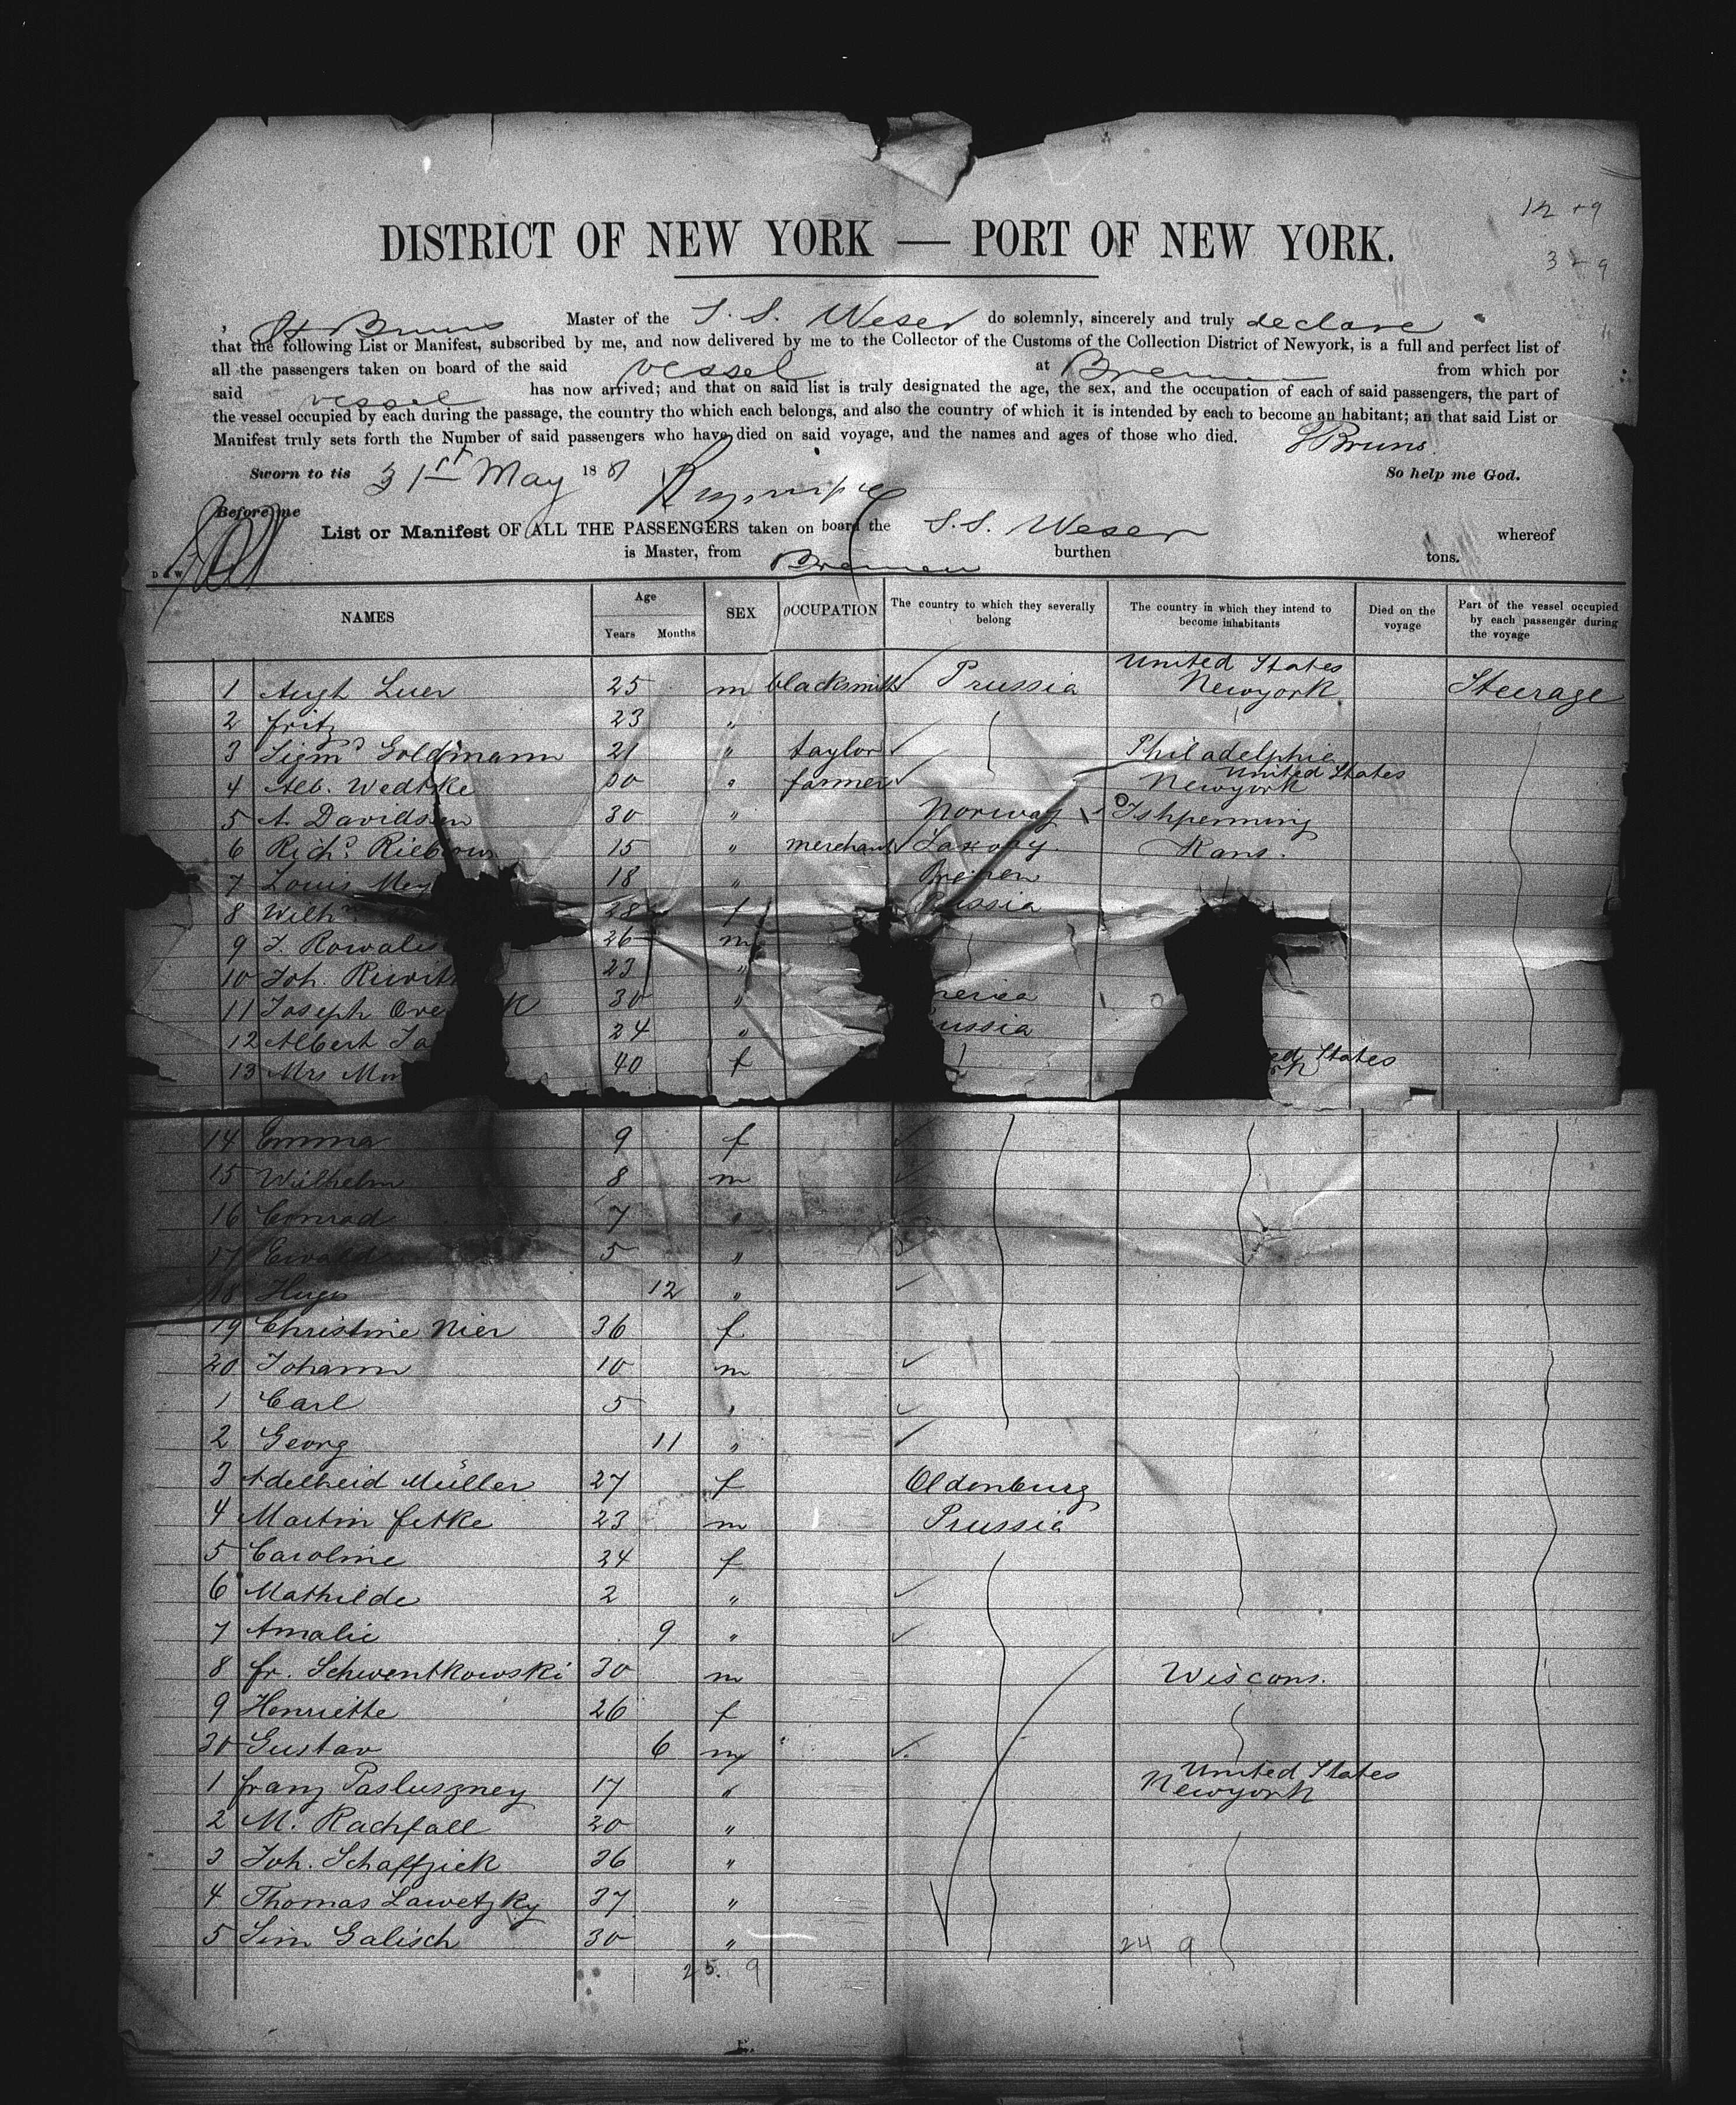 12 + 9
DISTRICT OF NEW YORK — PORT OF NEW YORK.
3 + 9
H Bruns Master of the S. S. Weser do solemnly, sincerely and truly declare
that the following List or Manifest, subscribed by me, and now delivered by me to the Collector of the Customs of the Collection District of Newyork, is a full and perfect list of
all the passengers taken on board of the said vessel at Bremen from which por
said vessel has now arrived; and that on said list is truly designated the age, the sex, and the occupation of each of said passengers, the part of
the vessel occupied by each during the passage, the country tho which each belongs, and also the country of which it is intended by each to become an habitant; an that said List or
Manifest truly sets forth the Number of said passengers who have died on said voyage, and the names and ages of those who died. Bruns
Sworn to tis 31st May 1881 So help me God.
Before me
List or Manifest OF ALL THE PASSENGERS taken on board the S.S. Weser whereof
is Master, from Bremen burthen tons.
NAMES Age Years Months SEX OCCUPATION The country to which they severally belong The country in which they intend to become inhabitants Died on the voyage Part of the vessel occupied by each passenger during the voyage
1 Augh Luer 25 m blacksmith Prussia United States Newyork Steerage
2 Fritz 23 "
3 Sigmd Goldmann 21 " taylor Philadelphia
4 Alb. Wedtke 30 " farmer United States Newyork
5 A. Davidsen 30 " Norway Ishpenning
6 Richd Riebow 15 " merchant Saxony Kans.
7 Louis Mey 18 " Bremen
8 Wilh 28 f ussia
9 J. Rowalis 26 m
10 Joh. Rewitt 23 "
11 Joseph Ove k 30 " merica
12 Albert Ja 24 " ussia
13 Mrs M 40 f ed States
14 Emma 9 f
15 Wilhelm 8 m
16 Conrad 7 "
17 Ewald 5 "
18 Hugo 12 "
19 Christine Nier 36 f
20 Johann 10 m
1 Carl 5 "
2 Georg 11 "
3 Adelheid Müller 27 f Oldenburg
4 Martin Fetke 23 m Prussia
5 Caroline 24 f
6 Mathilde 2 "
7 Amalie 9 "
8 Fr. Schwentkowski 30 m Wiscons.
9 Henriette 26 f
30 Gustav 6 m
1 Franz Pasluszney 17 " United States Newyork
2 M. Rachfall 20 "
3 Joh. Schaffzick 36 "
4 Thomas Lawetzky 37 "
5 Sim Galisch 30 "
24 9
25. 9